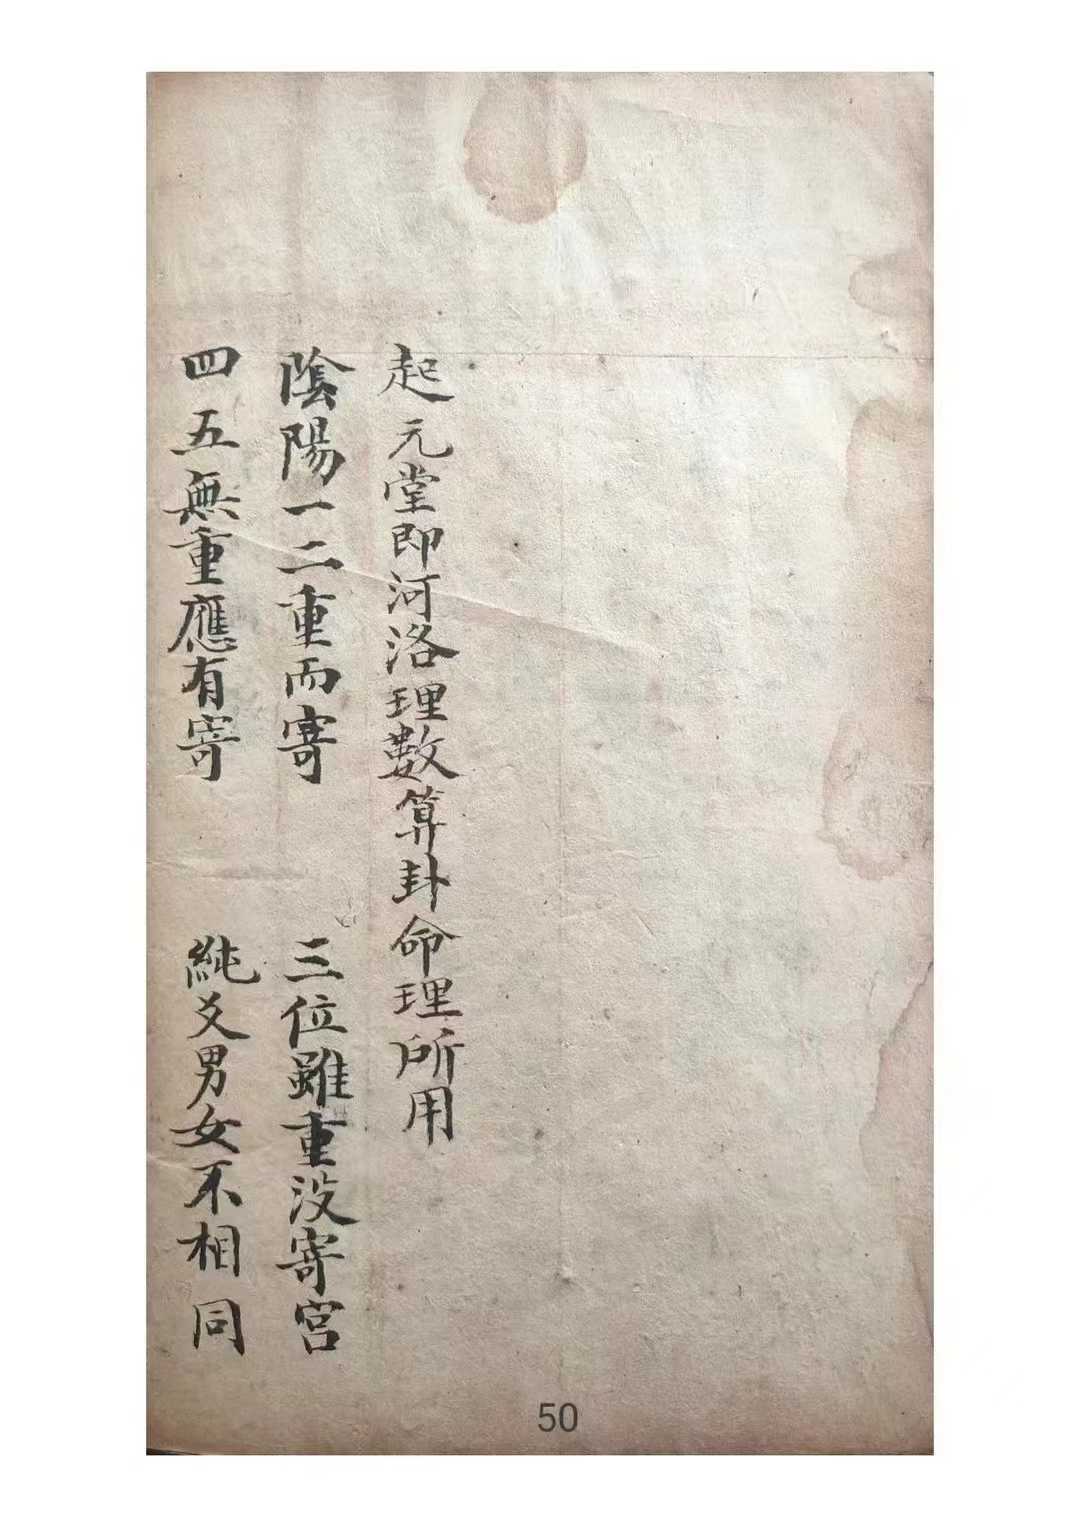 起元堂即河洛理數算卦命理所用
陰陽一二重而寄　三位雖重没寄宮
四五無重應有寄　純爻男女不相同
50